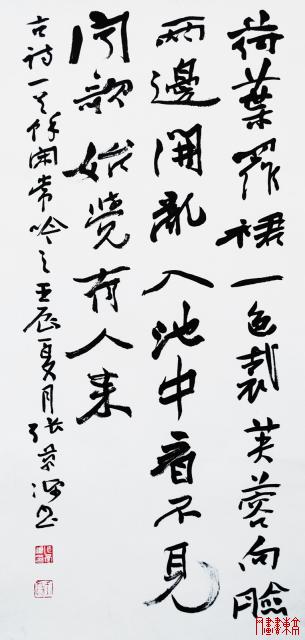 荷葉羅裙一色裁芙蓉向臉
兩邊開亂入池中看不見
聞歌始覺有人来
古詩一首余閑常吟之壬辰夏月張書